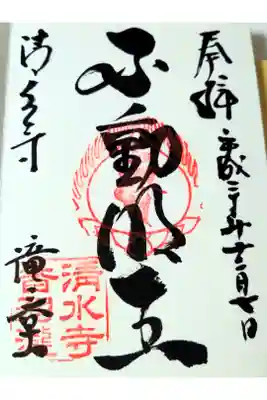 奉拝
平成二十年十二月七日
不動明王
清水寺
瀧之堂
清水寺
音羽瀧